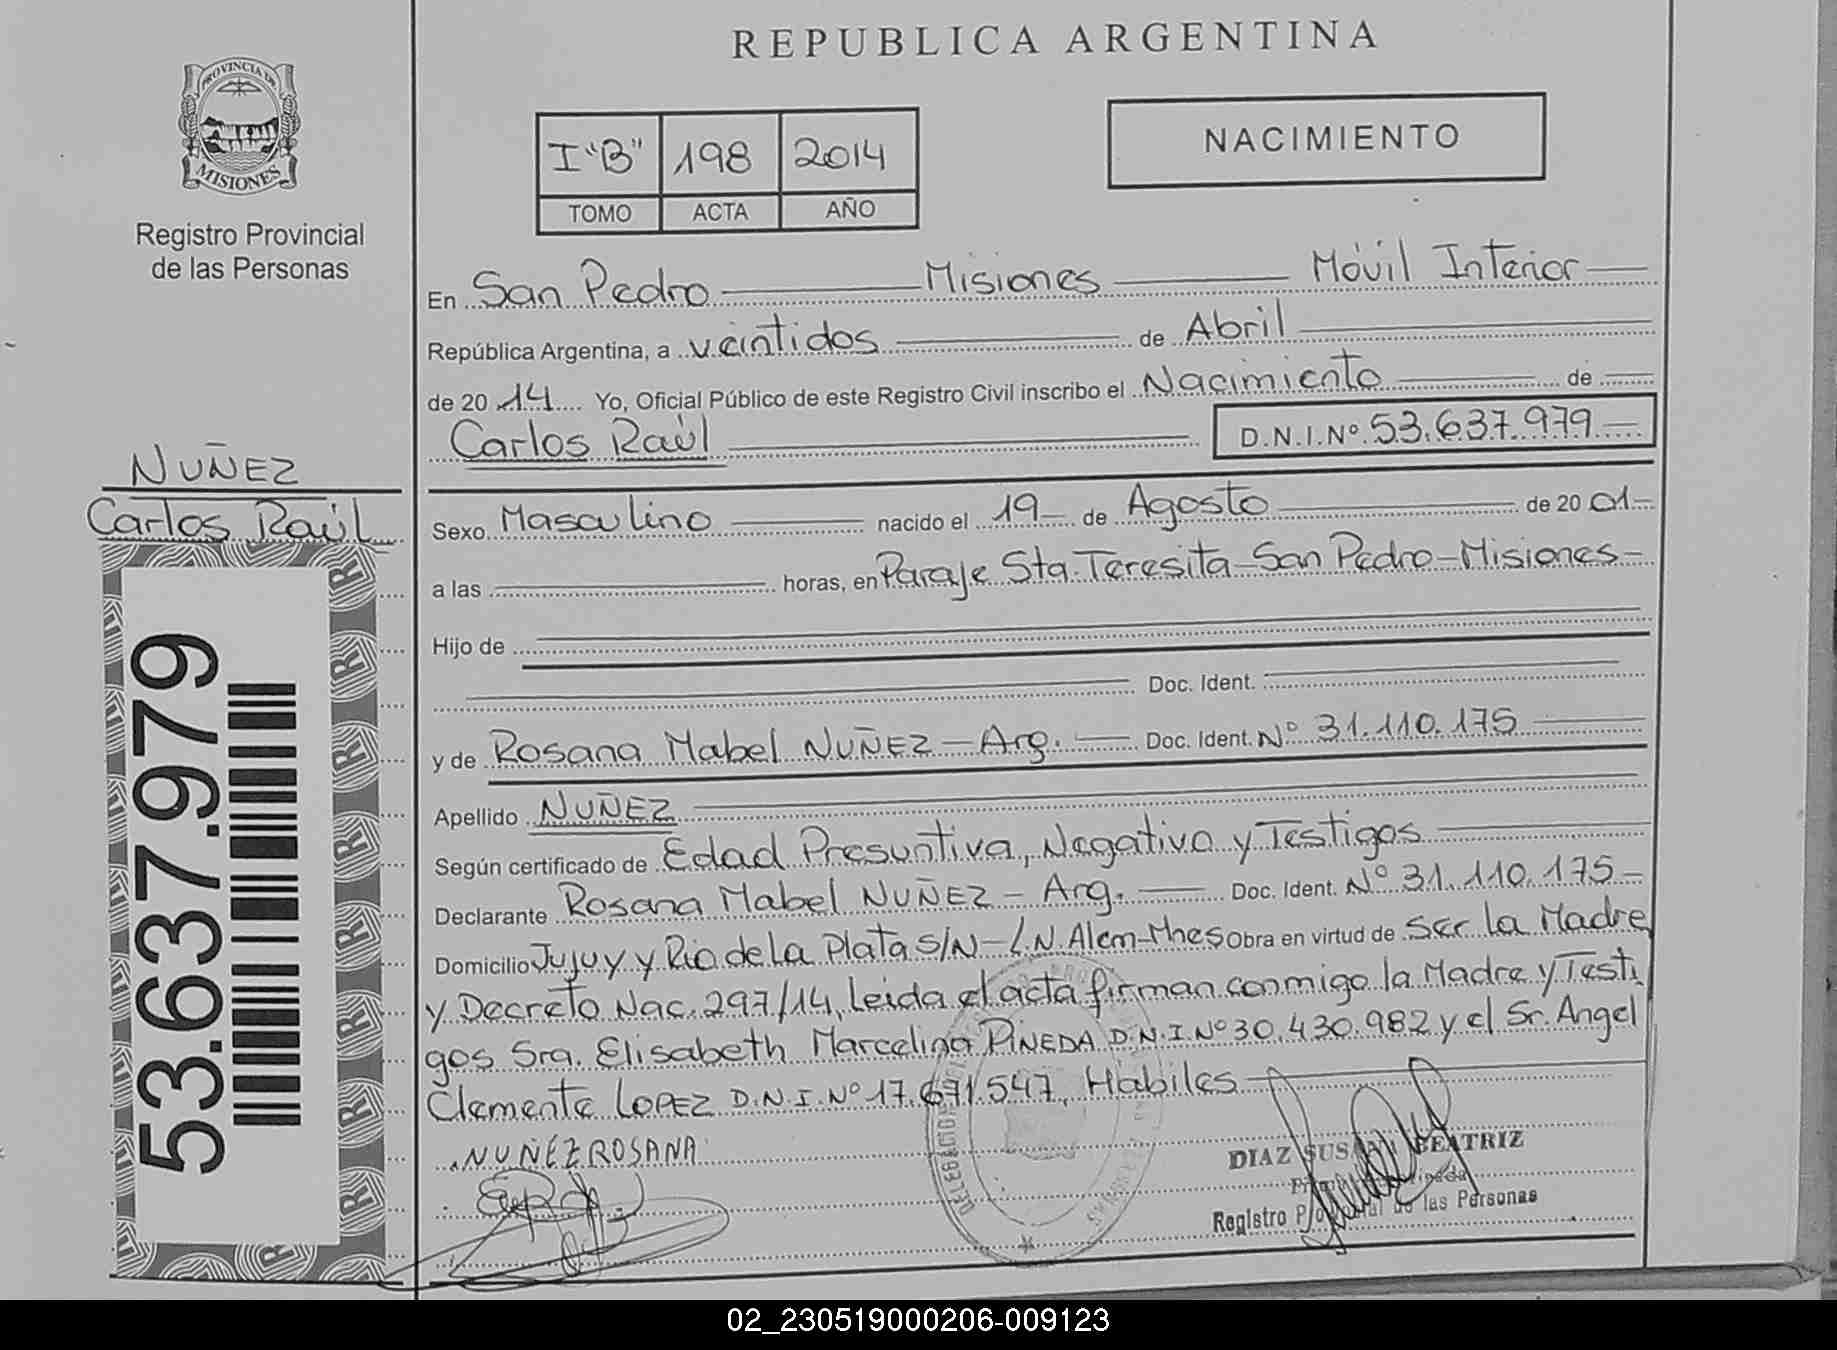 REPUBLICA ARGENTINA
PROVINCIA DE
MISIONES
Registro Provincial
de las Personas
I "B" 198 2014
TOMO ACTA AÑO
NACIMIENTO
En San Pedro Misiones Móvil Interior
República Argentina, a veintidos de Abril
de 2014 Yo, Oficial Público de este Registro Civil inscribo el Nacimiento de
Carlos Raúl D.N.I.Nº 53.637.979
NUÑEZ
Carlos Raúl
53.637.979
Sexo Masculino nacido el 19 de Agosto de 2001
a las horas, en Paraje Sta. Teresita - San Pedro - Misiones
Hijo de
Doc. Ident.
y de Rosana Mabel NUÑEZ - Arg. Doc. Ident. Nº 31.110.175
Apellido NUÑEZ
Según certificado de Edad Presuntiva, Negativo y Testigos
Declarante Rosana Mabel NUÑEZ - Arg. Doc. Ident. Nº 31.110.175
Domicilio Jujuy y Rio de La Plata S/N - L.N. Alem - Mnes Obra en virtud de Ser la Madre
y Decreto Nac. 297/14, leida el acta firman conmigo la Madre y Testi
gos Sra. Elisabeth Marcelina PINEDA D.N.I.Nº 30.430.982 y el Sr. Angel
Clemente LOPEZ D.N.I.Nº 17.671.547, Habiles
NUÑEZ ROSANA
DIAZ SUSANA BEATRIZ
Registro Provincial de las Personas
02_230519000206-009123